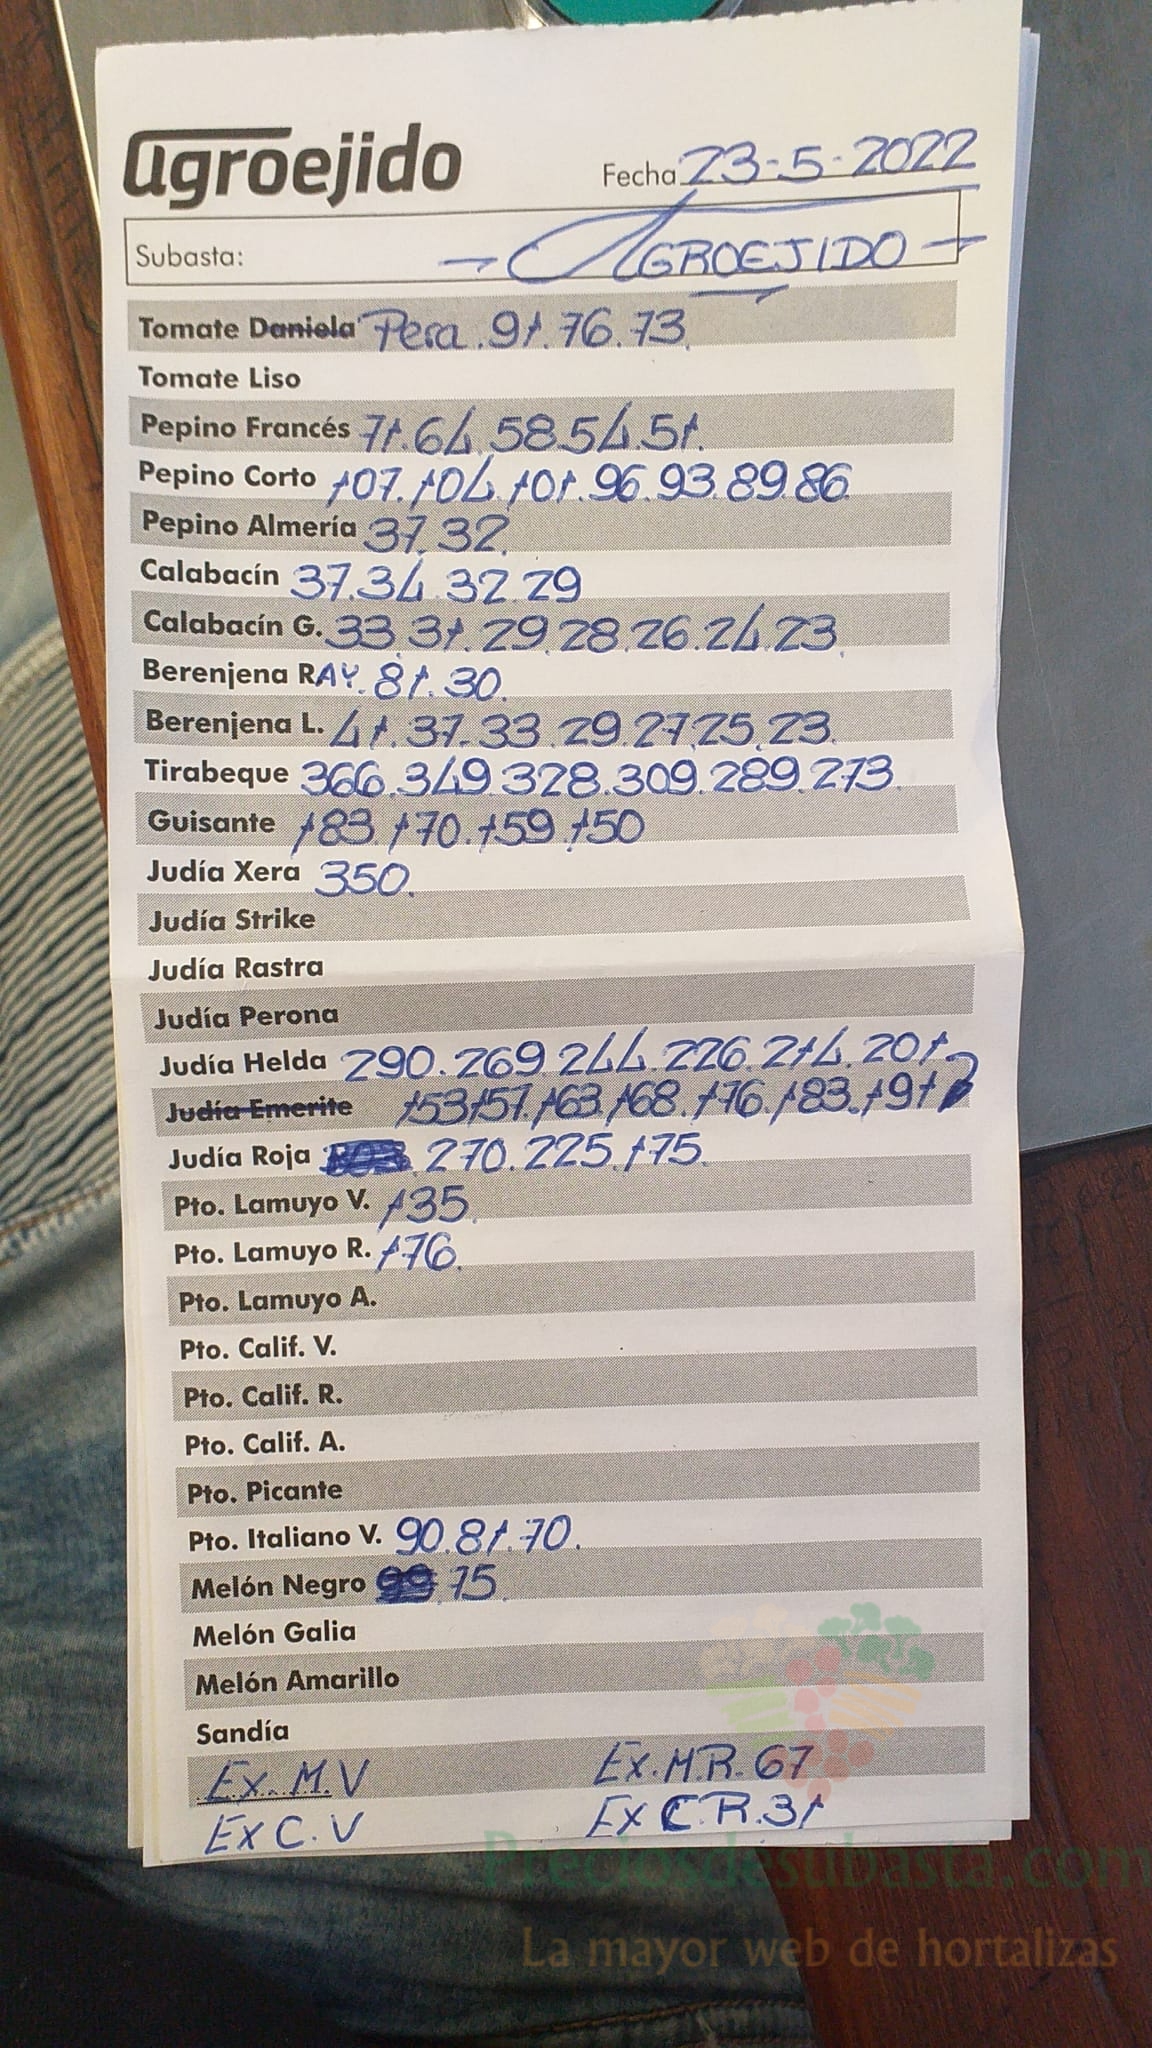 agroejido
Fecha 23-5-2022
Subasta: AGROEJIDO
Tomate Daniela Pera. 91. 76. 73.
Tomate Liso
Pepino Francés 71. 64. 58. 54. 51.
Pepino Corto 107. 104. 101. 96. 93. 89. 86.
Pepino Almería 37. 32.
Calabacín 37. 34. 32. 29
Calabacín G. 33. 31. 29. 28. 26. 24. 23.
Berenjena RAY. 81. 30.
Berenjena L. 41. 37. 33. 29. 27. 25. 23.
Tirabeque 366. 349. 328. 309. 289. 273.
Guisante 183. 170. 159. 150
Judía Xera 350.
Judía Strike
Judía Rastra
Judía Perona
Judía Helda 290. 269. 244. 226. 214. 201.
Judía Emerite 153. 157. 163. 168. 176. 183. 191
Judía Roja 270. 225. 175.
Pto. Lamuyo V. 135.
Pto. Lamuyo R. 176.
Pto. Lamuyo A.
Pto. Calif. V.
Pto. Calif. R.
Pto. Calif. A.
Pto. Picante
Pto. Italiano V. 90. 81. 70.
Melón Negro 75.
Melón Galia
Melón Amarillo
Sandía
Ex. M. V Ex. M. R. 67
Ex C. V Ex C. R. 31
Preciosdesubasta.com
La mayor web de hortalizas